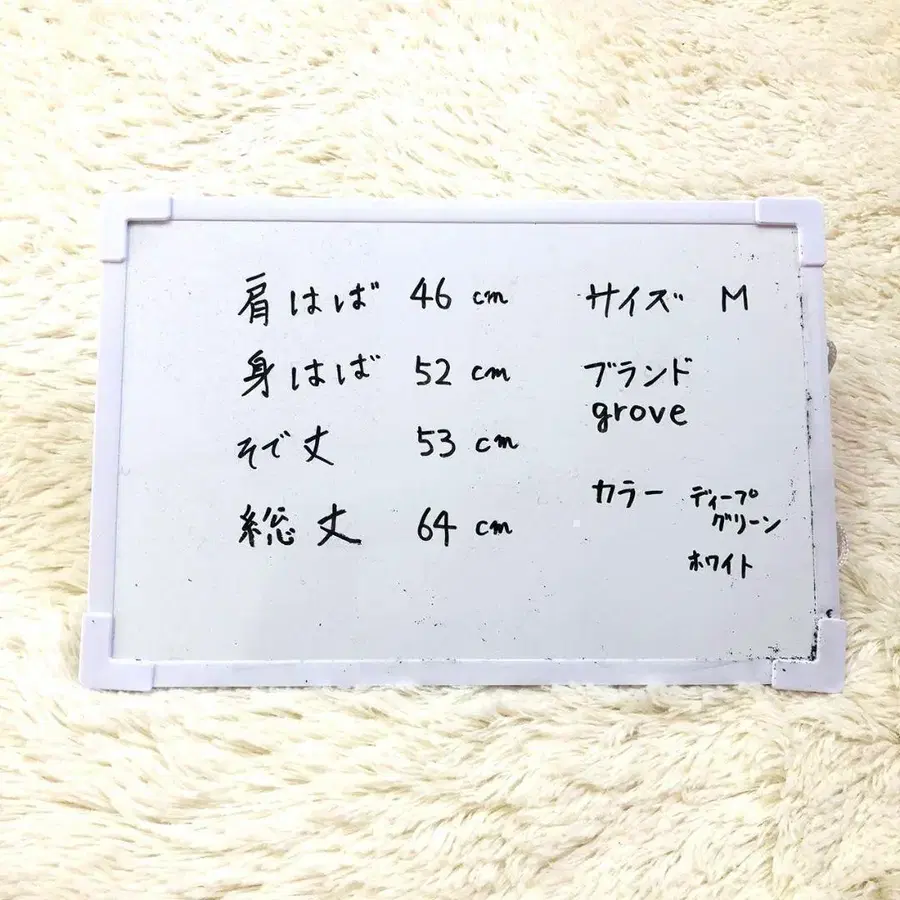 肩はば 46 cm
身はば 52 cm
そで丈 53 cm
総丈 64 cm
サイズ M
ブランド
grove
カラー ディープ
グリーン
ホワイト